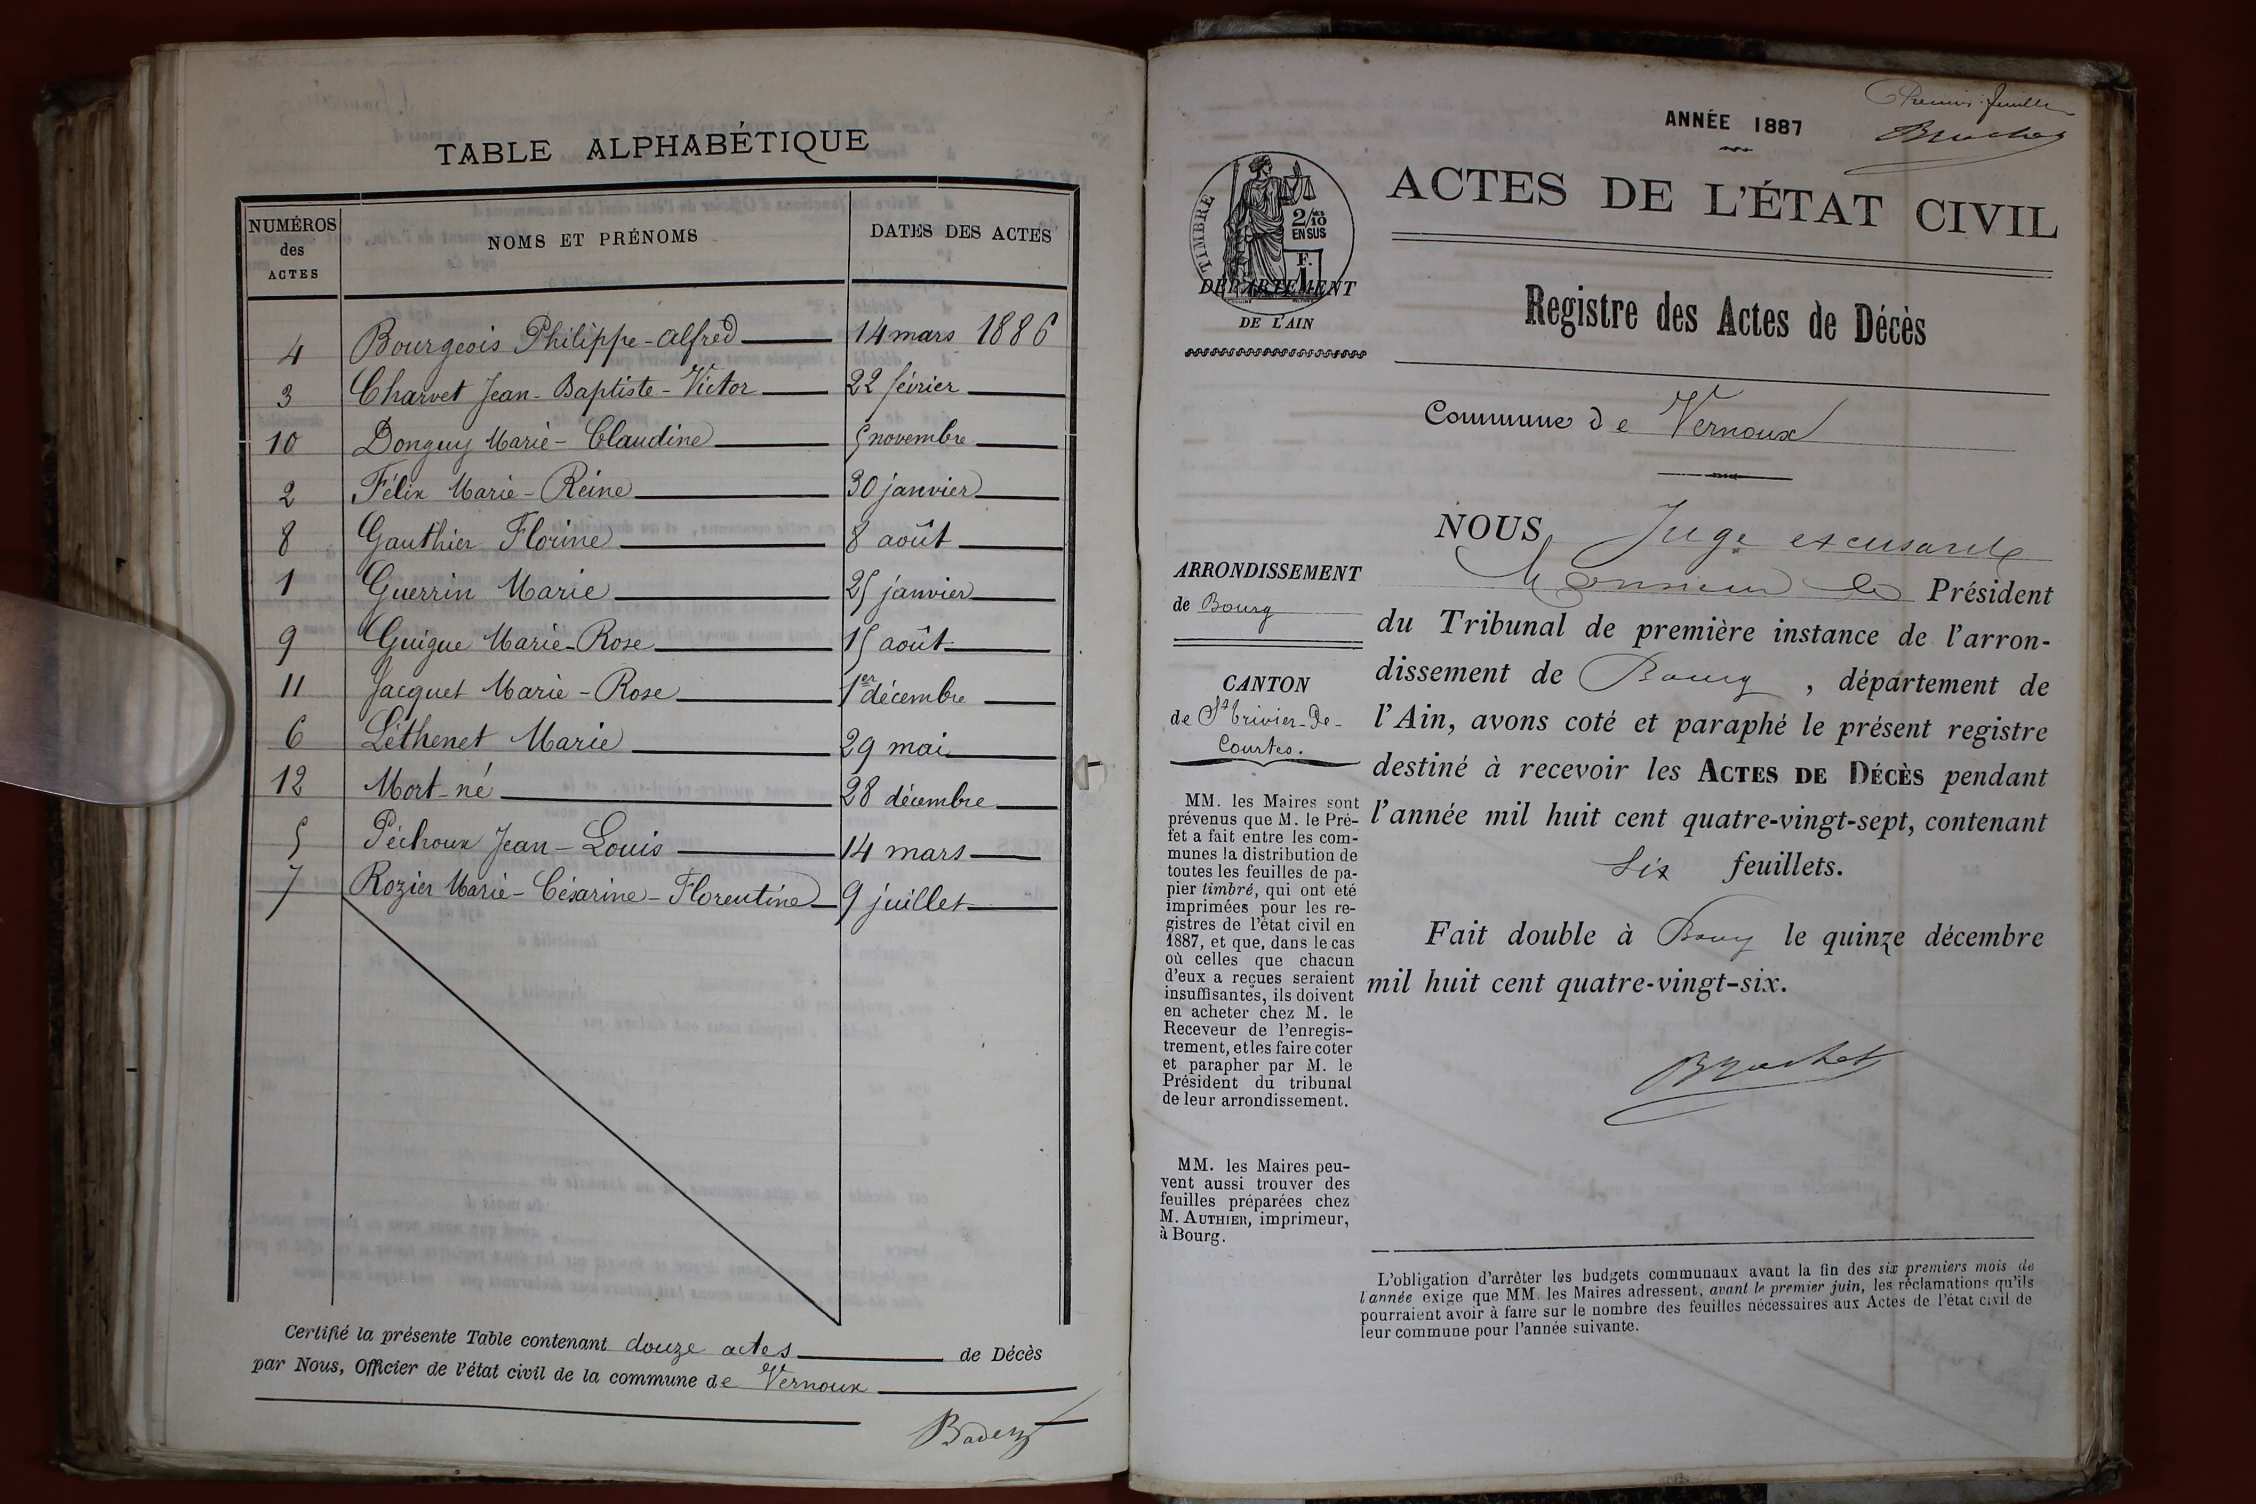 TABLE ALPHABÉTIQUE
NUMÉROS
des
ACTES
NOMS ET PRÉNOMS
DATES DES ACTES
4 Bourgeois Philippe-Alfred 14 mars 1886
3 Charvet Jean-Baptiste-Victor 22 février
10 Donguy Marie-Claudine 5 novembre
2 Félix Marie-Reine 30 janvier
8 Gauthier Florine 8 août
1 Guerrin Marie 25 janvier
9 Guigue Marie-Rose 15 août
11 Jacquet Marie-Rose 1er décembre
6 Léthenet Marie 29 mai
12 Mort-né 28 décembre
5 Péchoux Jean-Louis 14 mars
7 Rozier Marie-Césarine-Florentine 9 juillet
Certifié la présente Table contenant douze actes de Décès
par Nous, Officier de l'état civil de la commune de Vernoux
ANNÉE 1887
Brachet
ACTES DE L'ÉTAT CIVIL
TIMBRE
2/10
EN SUS
F.
1
DÉPARTEMENT
DE L'AIN
Registre des Actes de Décès
Commune de Vernoux
ARRONDISSEMENT
de Bourg
CANTON
de St Trivier-de-
Courtes.
MM. les Maires sont
prévenus que M. le Pré-
fet a fait entre les com-
munes la distribution de
toutes les feuilles de pa-
pier timbré, qui ont été
imprimées pour les re-
gistres de l'état civil en
1887, et que, dans le cas
où celles que chacun
d'eux a reçues seraient
insuffisantes, ils doivent
en acheter chez M. le
Receveur de l'enregis-
trement, et les faire coter
et parapher par M. le
Président du tribunal
de leur arrondissement.
MM. les Maires peu-
vent aussi trouver des
feuilles préparées chez
M. AUTHIER, imprimeur,
à Bourg.
NOUS, Juge excusant
Monsieur le Président
du Tribunal de première instance de l'arron-
dissement de Bourg, département de
l'Ain, avons coté et paraphé le présent registre
destiné à recevoir les ACTES DE DÉCÈS pendant
l'année mil huit cent quatre-vingt-sept, contenant
six feuillets.
Fait double à Bourg le quinze décembre
mil huit cent quatre-vingt-six.
Brachet
L'obligation d'arrêter les budgets communaux avant la fin des six premiers mois de
l'année exige que MM. les Maires adressent, avant le premier juin, les réclamations qu'ils
pourraient avoir à faire sur le nombre des feuilles nécessaires aux Actes de l'état civil de
leur commune pour l'année suivante.